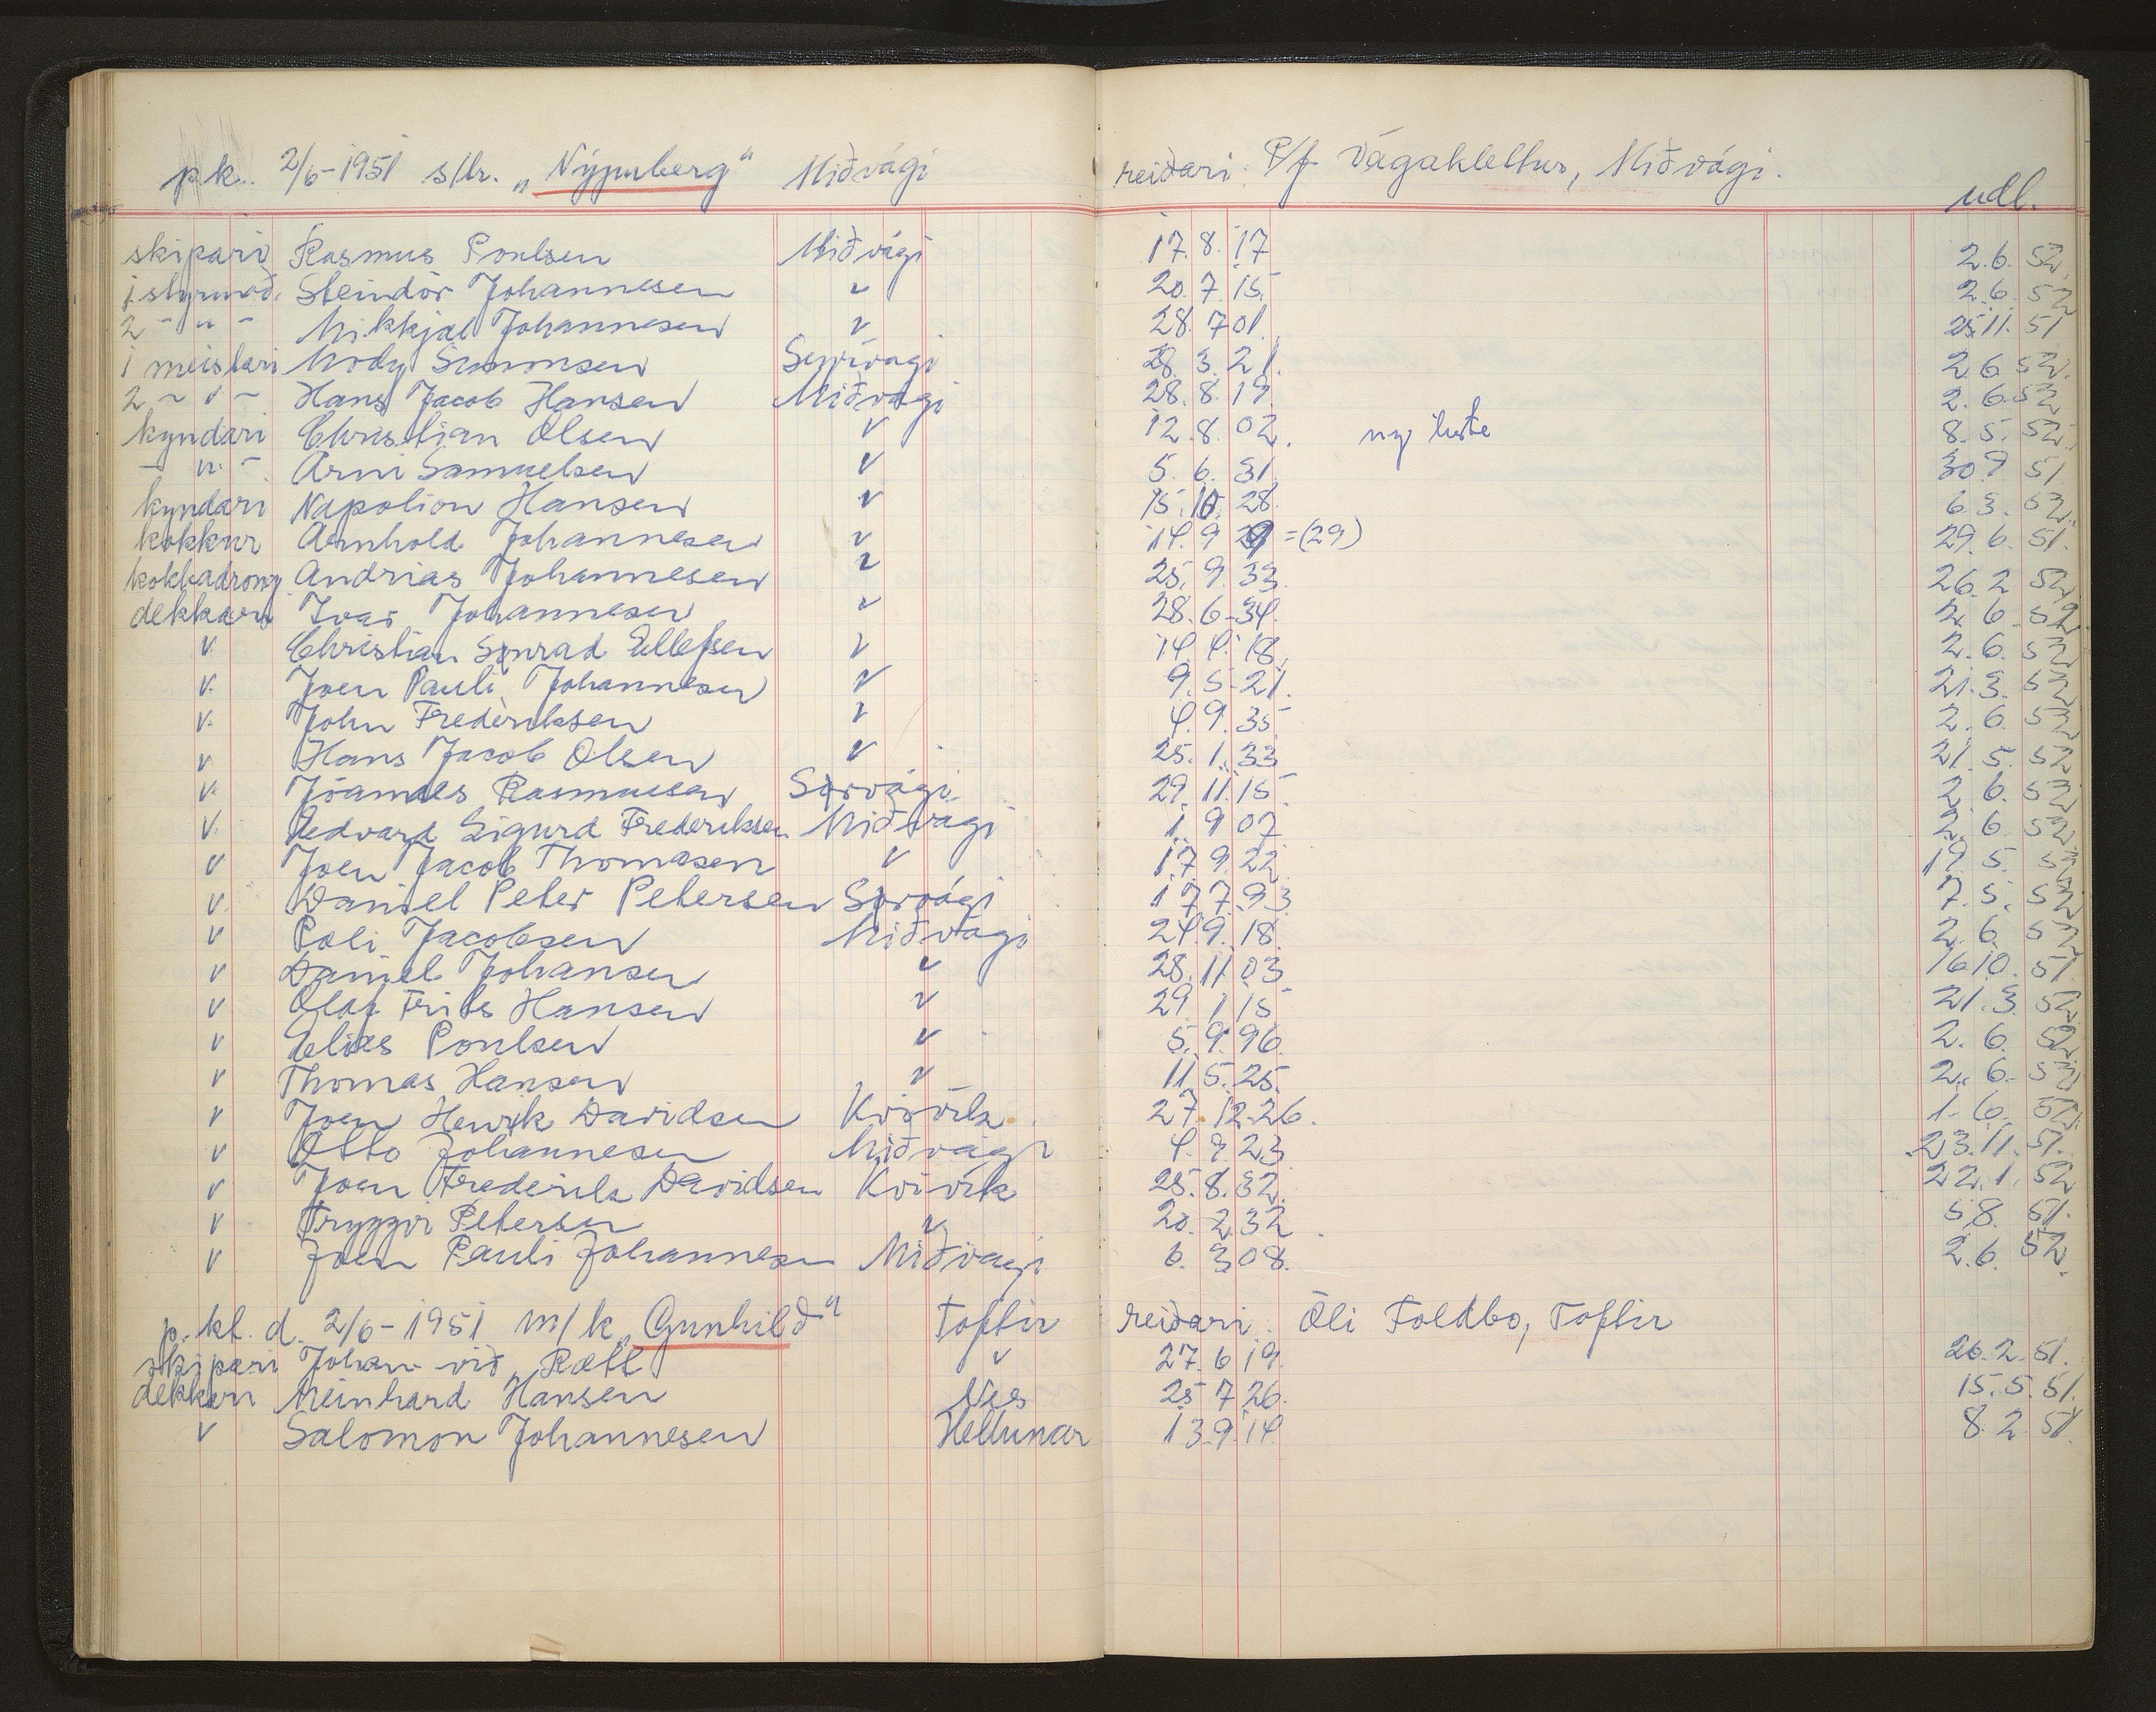 p.k. 2/6-1951 s/tr. „Nýpuberg" Miðvági reiðari: P/f Vágaklettur, Miðvági.
udl.
skipari Rasmus Poulsen Miðvági 17. 8. 17 2. 6. 52.
1 styrmað. Steindór Johannesen v 20. 7. 15. 2. 6. 52
2 - " - Mikkjal Johannesen v 28. 7 01. 25. 11. 51
1 meistari Mody Simonsen Sørvági 28. 3. 21. 2. 6 52.
2 - " - Hans Jacob Hansen Miðvági 28. 8. 19. 2. 6. 52
kyndari Christian Olsen v 12. 8. 02. ny liste 8. 5. 52.
- " - Arni Samuelsen v 5. 6. 31. 30. 7 51.
kyndari Napolion Hansen v 15. 10. 28. 6. 3. 52.
kokkur Arnhold Johannesen v 14. 9 29 =(29) 29. 6. 51.
kokkadrong Andrias Johannesen v 25. 9. 33. 26. 2 52.
dekkari Ivar Johannesen v 28. 6-34. 2. 6. 52
v. Christian Conrad Ellefsen v 14. 4. 18. 2. 6. 52
v. Joen Pauli Johannesen v 9. 5-21. 21. 3. 52
v. John Frederiksen v 4. 9. 35 2. 6. 52
v. Hans Jacob Olsen v 25. 1. 33 21. 5. 52
v. Jóannes Rasmussen Sørvági 29. 11. 15. 2. 6. 52
v. Hedvard Sigurd Frederiksen Miðvági 1. 9 07 2. 6. 52
v Joen Jacob Thomasen v 17. 9. 22. 19. 5. 52
v. Daniel Peter Petersen Sørvági 17 7. 93 7. 5. 52
v Poli Jacobsen Miðvági 24. 9. 18. 2. 6. 52
v Daniel Johansen v 28. 11. 03. 16. 10. 51.
v Olaf Frits Hansen v 29. 1 15 21. 3. 52
v Elias Poulsen v 5. 9. 96. 2. 6. 52.
v Thomas Hansen v 11. 5. 25. 2. 6. 52
v Joen Henrik Davidsen Kvívík 27. 12-26. 1. 6. 52.
v Otto Johannesen Miðvági 4. 9. 23. 23. 11. 51.
v Joen Frederik Davidsen Kvívík 25. 8. 32. 22. 1. 52
v Tryggvi Petersen v 20. 2 32. 5 8. 51.
v Joen Pauli Johannesen Miðvági 6. 3 08. 2. 6. 52.
p. kl. d. 2/6-1951 m/k „Gunhild" Toftir reiðari: Óli Foldbo, Toftir
skipari Johan við Rætt v 27. 6 19. 26. 2. 51.
dekkari Meinhard Hansen Nes 25 7 26. 15. 5. 51.
v Salomon Johannesen Hellunar 13. 9. 14. 8. 2. 51.